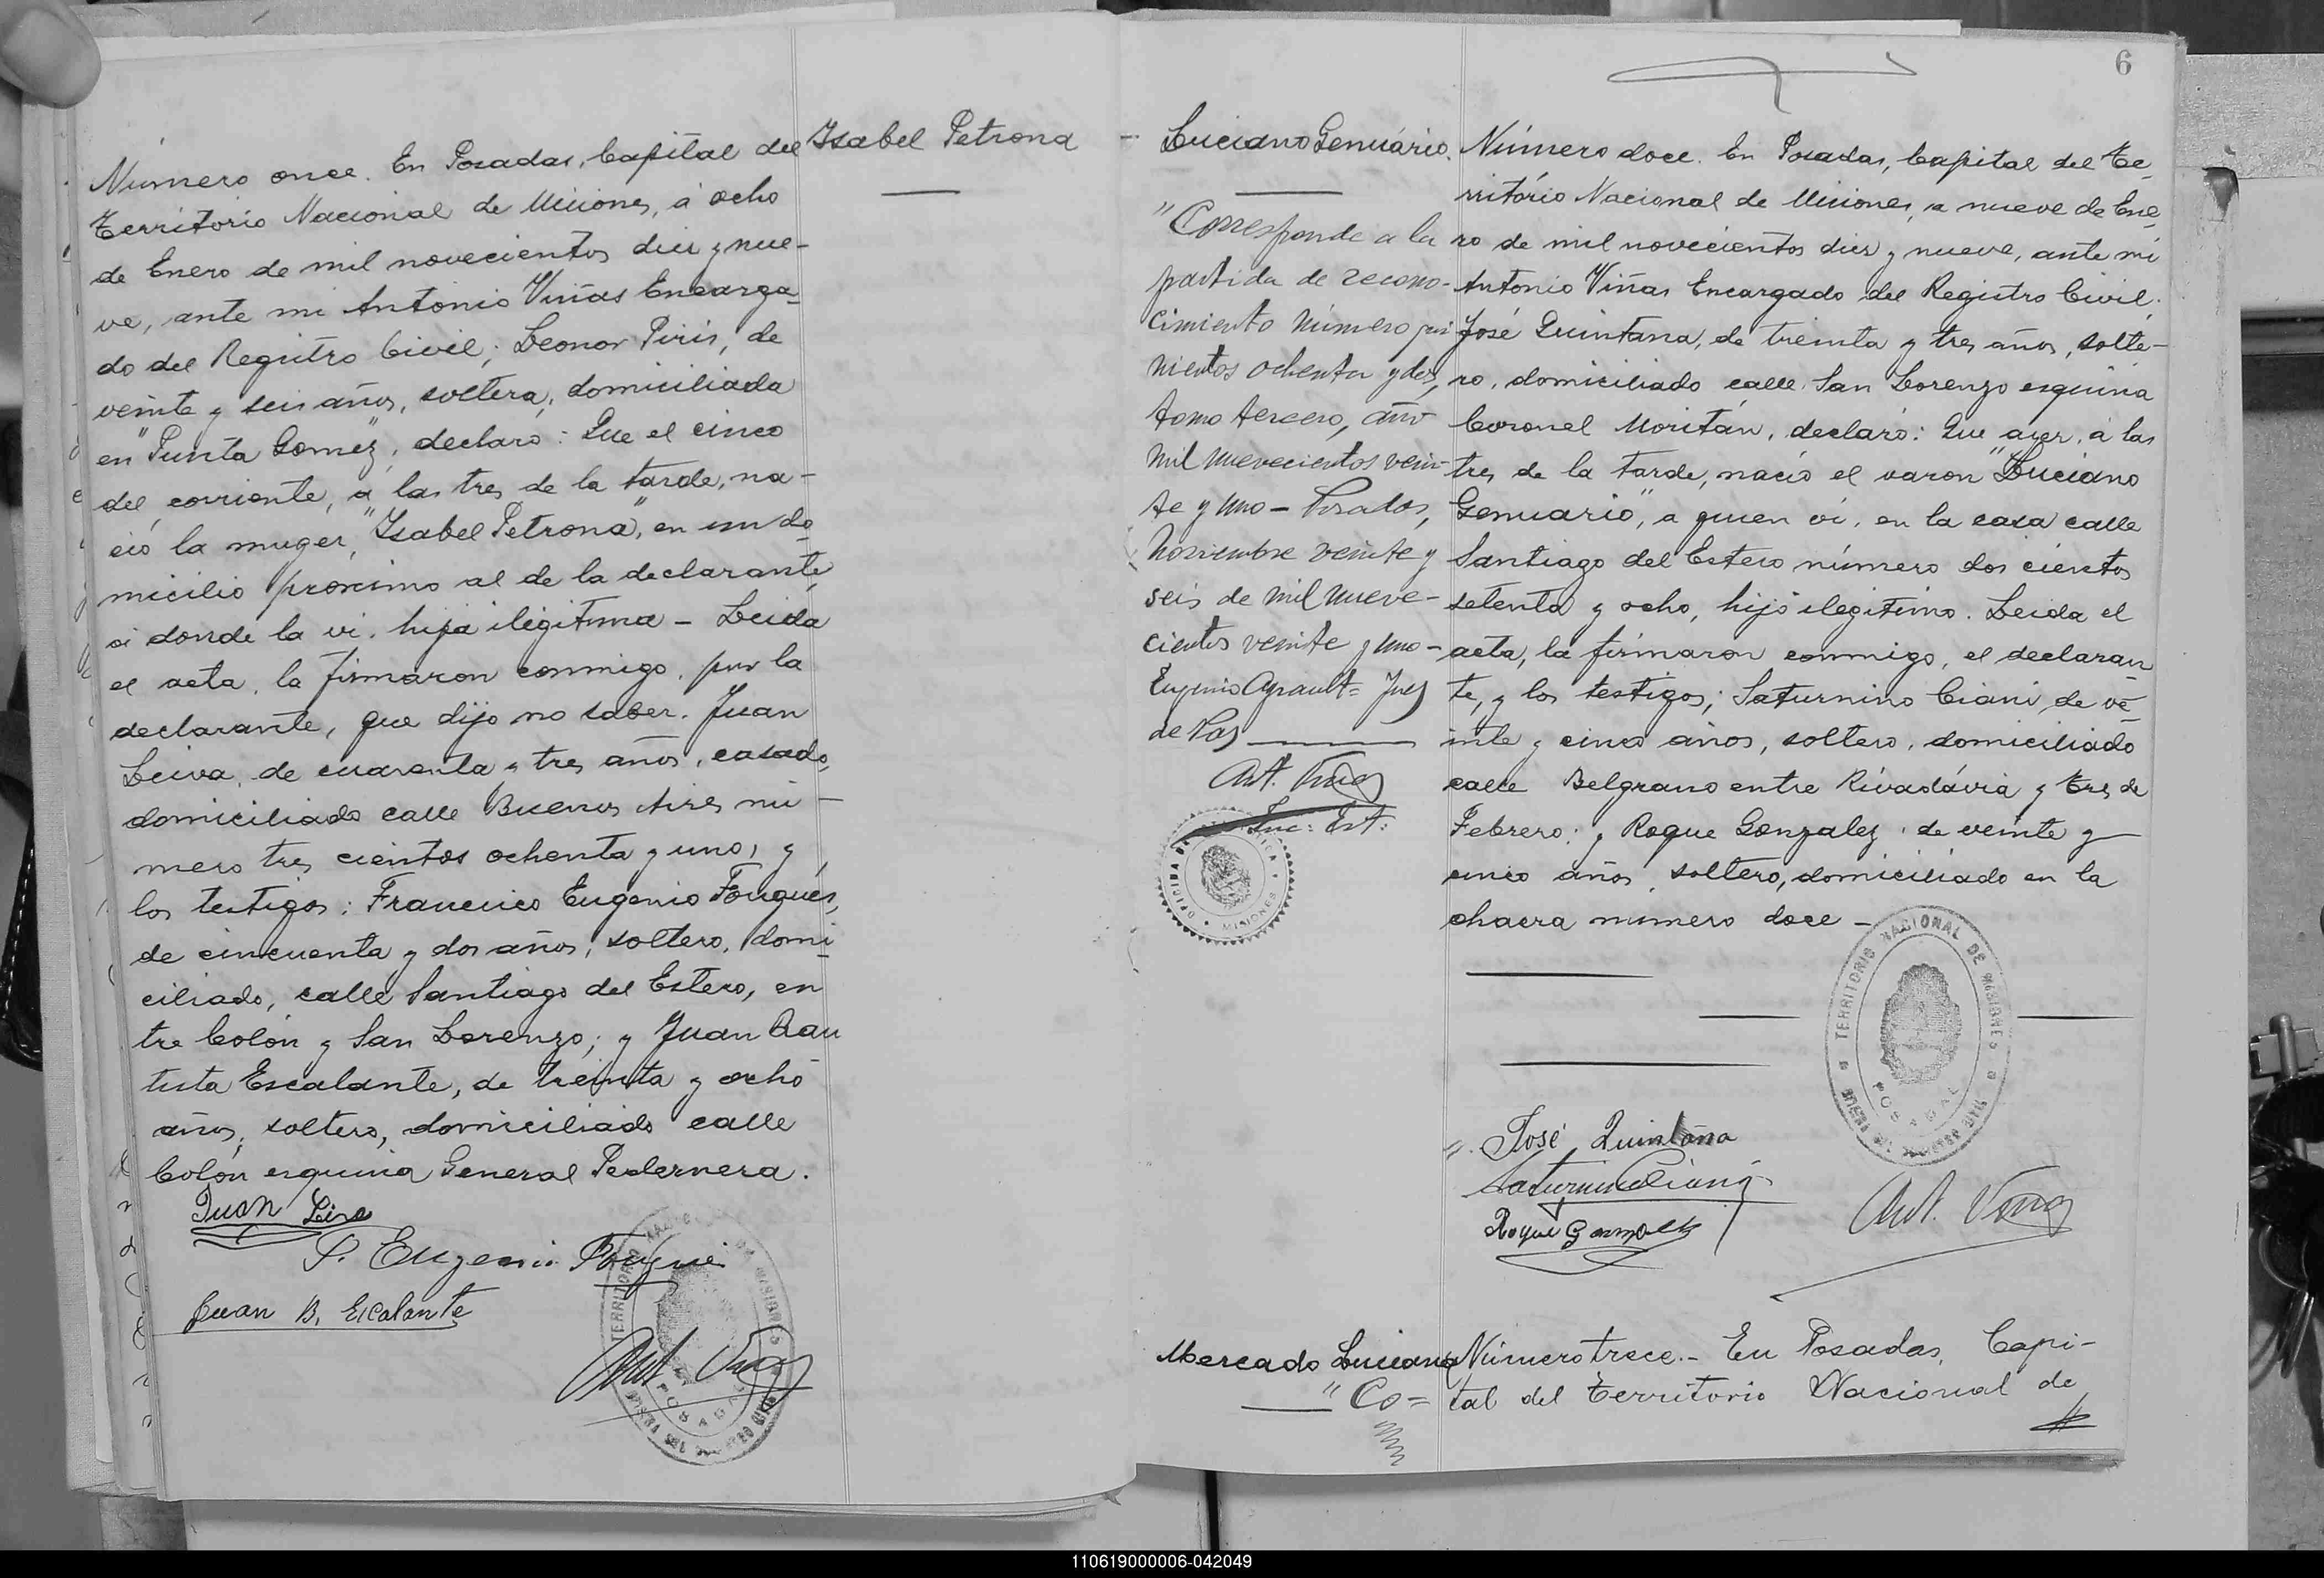 Número once. En Posadas, Capital del
Territorio Nacional de Misiones, á ocho
de Enero de mil novecientos diez y nue-
ve, ante mi Antonio Viñas Encarga-
do del Registro Civil; Leonor Piris, de
veinte y seis años, soltera, domiciliada
en "Punta Gomez", declaro: Que el cinco
del corriente, á las tres de la tarde, na-
ció la muger, "Ysabel Petrona", en un do
micilio proximo al de la declarante,
á donde la vi, hija ilegitima – Leida
el acta, la firmaron conmigo, por la
declarante, que dijo no saber. Juan
Leiva, de cuarenta y tres años, casado,
domiciliado calle Buenos Aires nú-
mero tres cientos ochenta y uno, y
los testigos: Francisco Eugenio Fouques,
de cincuenta y dos años, soltero, domi-
ciliado, calle Santiago del Estero, en
tre Colón y San Lorenzo; y Juan Bau
tista Escalante, de treinta y ocho
años, soltero, domiciliado calle
Colón esquina General Pedernera.
Juan
Eugenio
Juan B. Escalante
Ant. Viñas
Ysabel Petrona
6
Luciano Genuário.
"Corresponde a la
partida de recono-
cimiento número qui
nientos ochenta y dos,
tomo tercero, año
mil nuevecientos vein-
te y uno – Posadas,
Noviembre veinte y
seis de mil nueve-
cientos veinte y uno –
Eugenio = Juez
de Paz
Ant. Viñas
MISIONES
Número doce. En Posadas, Capital del Te-
rritório Nacional de Misiones, a nueve de Ene
ro de mil novecientos diez y nueve, ante mi
Antonio Viñas Encargado del Registro Civil;
José Quintana, de treinta y tres años, solte-
ro, domiciliado calle San Lorenzo esquina
Coronel Moritán, declaró: Que ayer, á las
tres de la tarde, nació el varon "Luciano
Genuario", a quien vi, en la casa calle
Santiago del Estero número dos cientos
setenta y ocho, hijo ilegitimo. Leida el
acta, la firmaron conmigo, el declaran
te, y los testigos; Saturnino Ciani, de ve-
inte y cinco años, soltero, domiciliado
calle Belgrano entre Rivadávia y tres de
Febrero: y Roque Gonzalez, de veinte y
cinco años, soltero, domiciliado en la
chacra número doce –
TERRITORIO NACIONAL DE MISIONES
POSADAS
José Quintana
Saturnino Ciani
Roque Gonzalez
Ant. Viñas
Mercado Luciana
"Co=
Número trece.– En Posadas, Capi-
tal del Territorio Nacional de
110619000006-042049